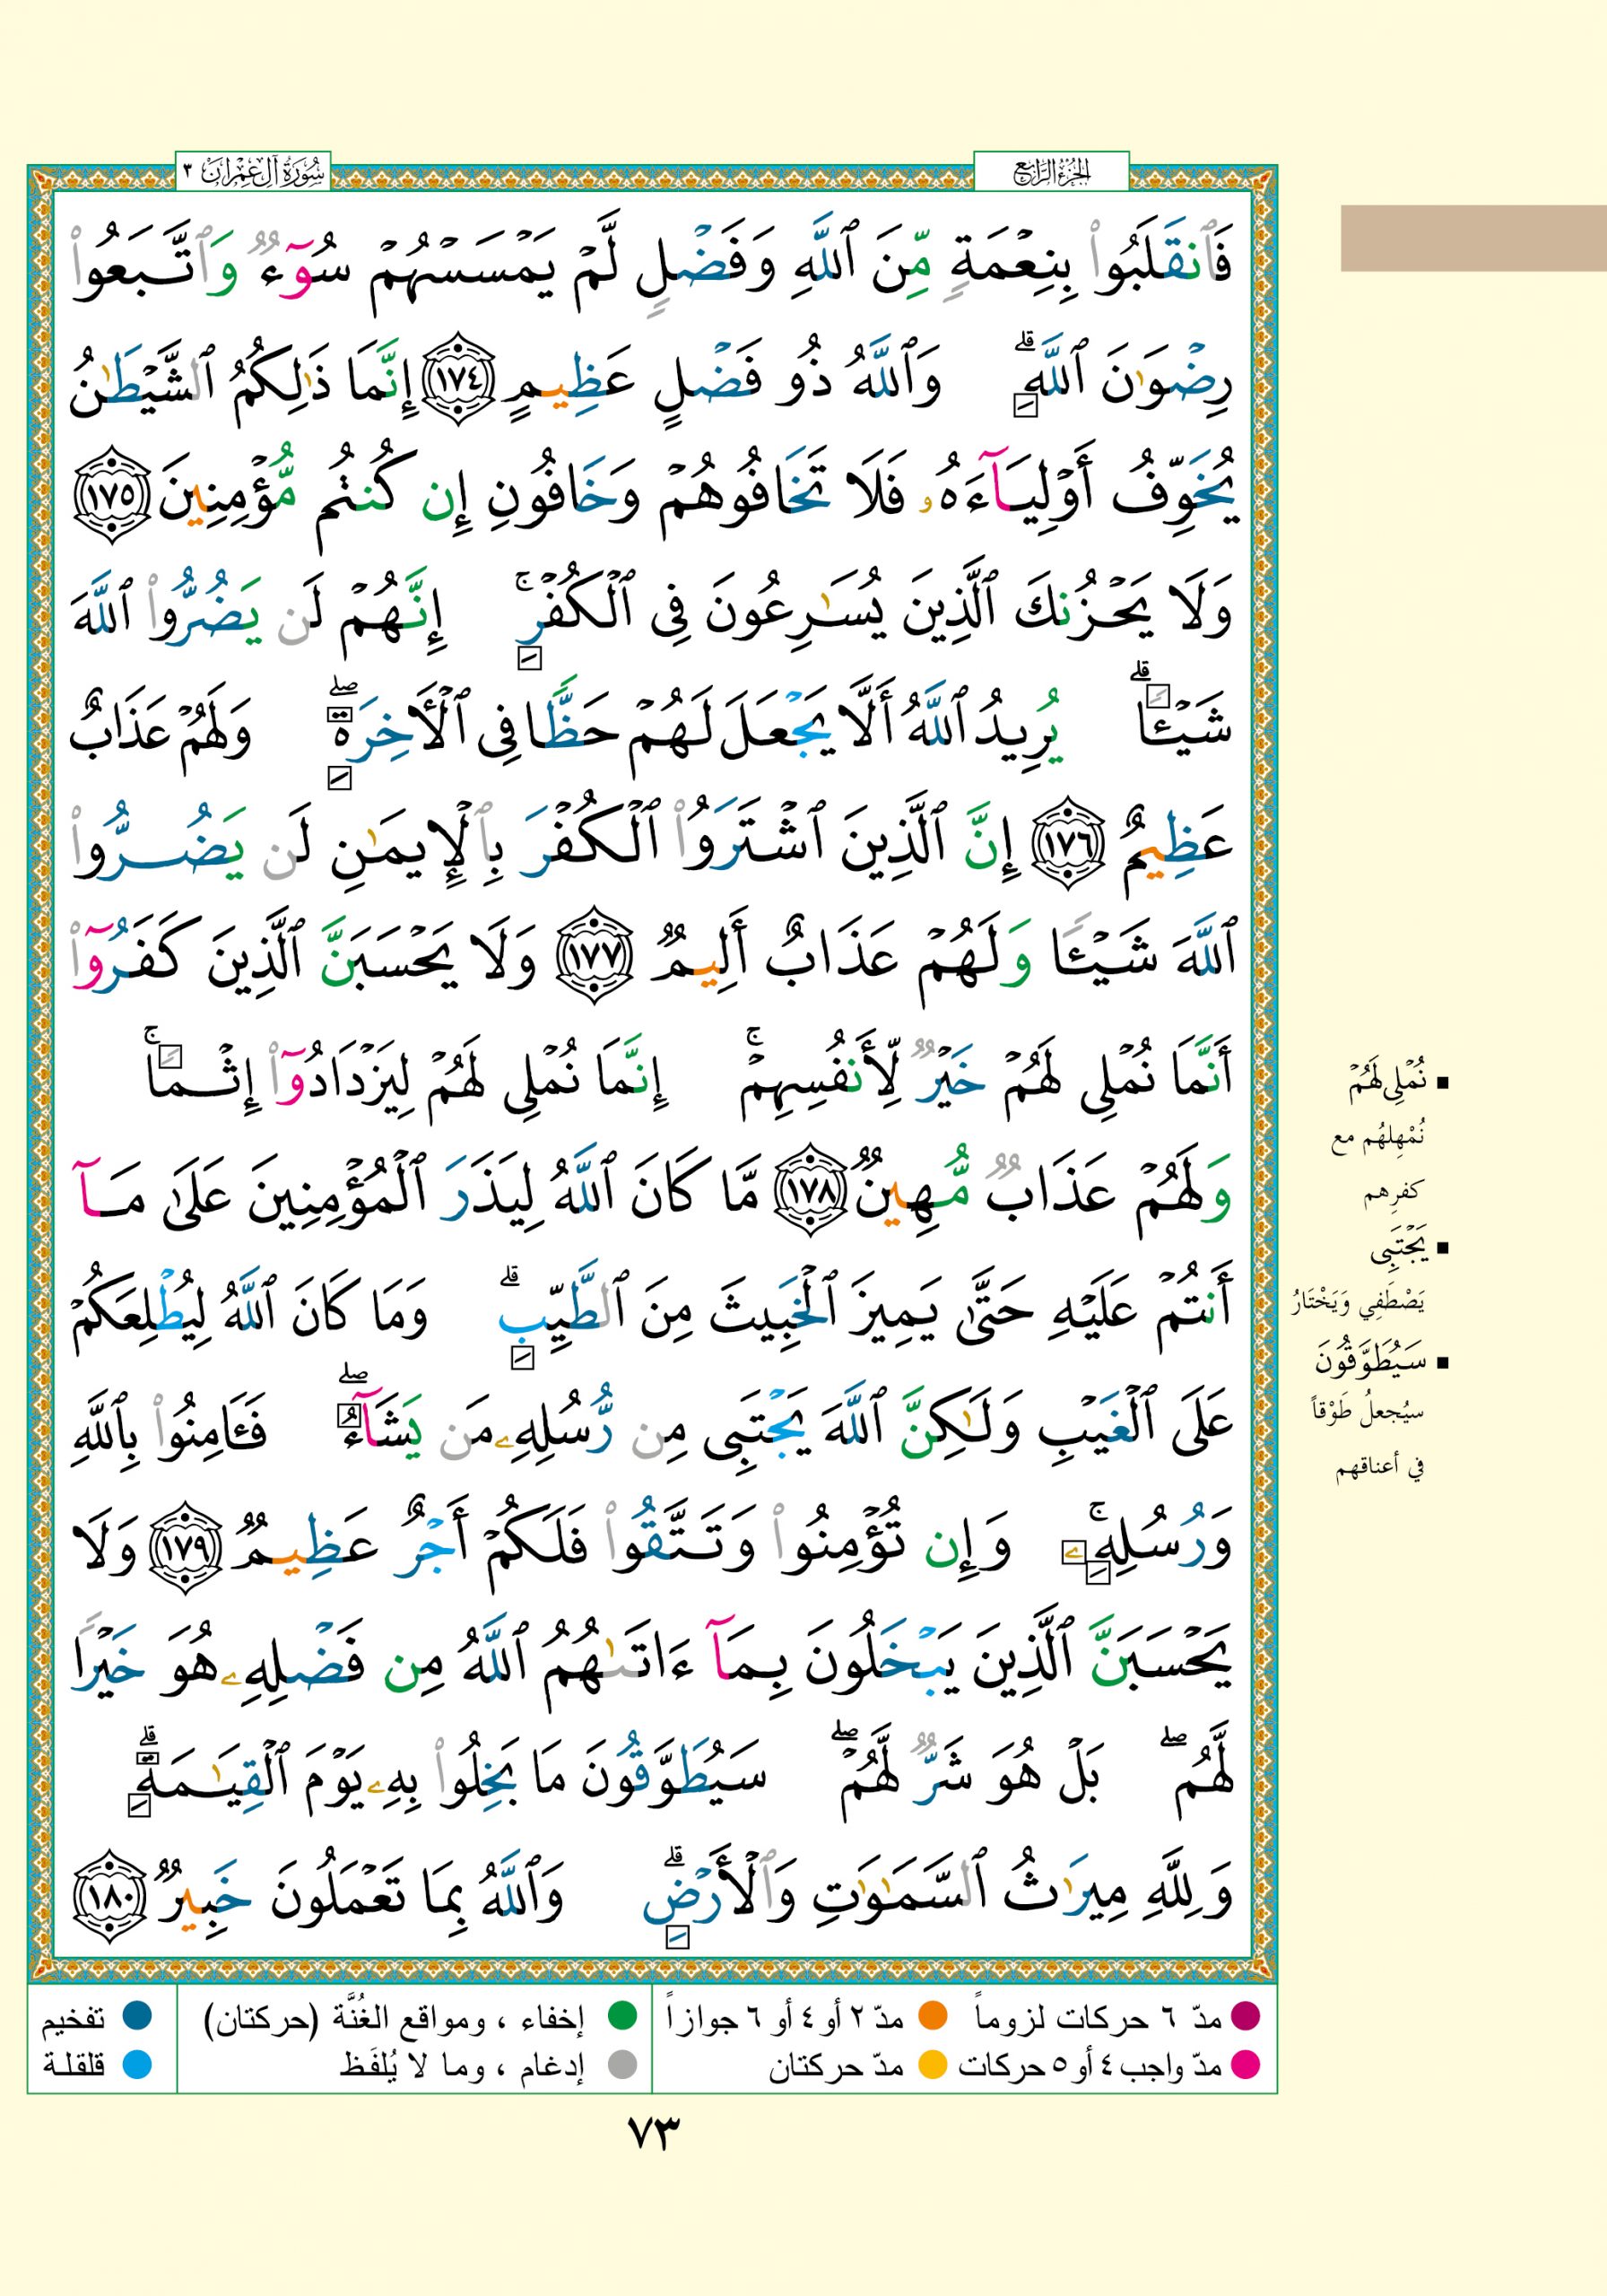 الجزء الرابع
سورة آل عمران ٣
فَٱنقَلَبُوا۟ بِنِعْمَةٍ مِّنَ ٱللَّهِ وَفَضْلٍ لَّمْ يَمْسَسْهُمْ سُوٓءٌ وَٱتَّبَعُوا۟
رِضْوَٰنَ ٱللَّهِ ۗ وَٱللَّهُ ذُو فَضْلٍ عَظِيمٍ ١٧٤ إِنَّمَا ذَٰلِكُمُ ٱلشَّيْطَٰنُ
يُخَوِّفُ أَوْلِيَآءَهُۥ فَلَا تَخَافُوهُمْ وَخَافُونِ إِن كُنتُم مُّؤْمِنِينَ ١٧٥
وَلَا يَحْزُنكَ ٱلَّذِينَ يُسَٰرِعُونَ فِى ٱلْكُفْرِ ۚ إِنَّهُمْ لَن يَضُرُّوا۟ ٱللَّهَ
شَيْـًٔا ۗ يُرِيدُ ٱللَّهُ أَلَّا يَجْعَلَ لَهُمْ حَظًّا فِى ٱلْأَخِرَةِ ۖ وَلَهُمْ عَذَابٌ
عَظِيمٌ ١٧٦ إِنَّ ٱلَّذِينَ ٱشْتَرَوُا۟ ٱلْكُفْرَ بِٱلْإِيمَٰنِ لَن يَضُرُّوا۟
ٱللَّهَ شَيْـًٔا وَلَهُمْ عَذَابٌ أَلِيمٌ ١٧٧ وَلَا يَحْسَبَنَّ ٱلَّذِينَ كَفَرُوٓا۟
أَنَّمَا نُمْلِى لَهُمْ خَيْرٌ لِّأَنفُسِهِمْ ۚ إِنَّمَا نُمْلِى لَهُمْ لِيَزْدَادُوٓا۟ إِثْمًا ۚ
وَلَهُمْ عَذَابٌ مُّهِينٌ ١٧٨ مَّا كَانَ ٱللَّهُ لِيَذَرَ ٱلْمُؤْمِنِينَ عَلَىٰ مَآ
أَنتُمْ عَلَيْهِ حَتَّىٰ يَمِيزَ ٱلْخَبِيثَ مِنَ ٱلطَّيِّبِ ۗ وَمَا كَانَ ٱللَّهُ لِيُطْلِعَكُمْ
عَلَى ٱلْغَيْبِ وَلَٰكِنَّ ٱللَّهَ يَجْتَبِى مِن رُّسُلِهِۦ مَن يَشَآءُ ۖ فَـَٔامِنُوا۟ بِٱللَّهِ
وَرُسُلِهِۦ ۚ وَإِن تُؤْمِنُوا۟ وَتَتَّقُوا۟ فَلَكُمْ أَجْرٌ عَظِيمٌ ١٧٩ وَلَا
يَحْسَبَنَّ ٱلَّذِينَ يَبْخَلُونَ بِمَآ ءَاتَىٰهُمُ ٱللَّهُ مِن فَضْلِهِۦ هُوَ خَيْرًا
لَّهُم ۖ بَلْ هُوَ شَرٌّ لَّهُمْ ۖ سَيُطَوَّقُونَ مَا بَخِلُوا۟ بِهِۦ يَوْمَ ٱلْقِيَٰمَةِ ۗ
وَلِلَّهِ مِيرَٰثُ ٱلسَّمَٰوَٰتِ وَٱلْأَرْضِ ۗ وَٱللَّهُ بِمَا تَعْمَلُونَ خَبِيرٌ ١٨٠
▪ نُمْلِى لَهُمْ
نُمْهِلهُم مع
كفرِهم
▪ يَجْتَبِى
يَصْطَفِي وَيَخْتَارُ
▪ سَيُطَوَّقُونَ
سيُجعلُ طَوْقاً
في أعناقهم
مدّ ٦ حركات لزوماً
مدّ ٢ أو ٤ أو ٦ جوازاً
مدّ واجب ٤ أو ٥ حركات
مدّ حركتان
إخفاء ، ومواقع الغُنَّة (حركتان)
إدغام ، وما لا يُلفَظ
تفخيم
قلقلة
٧٣